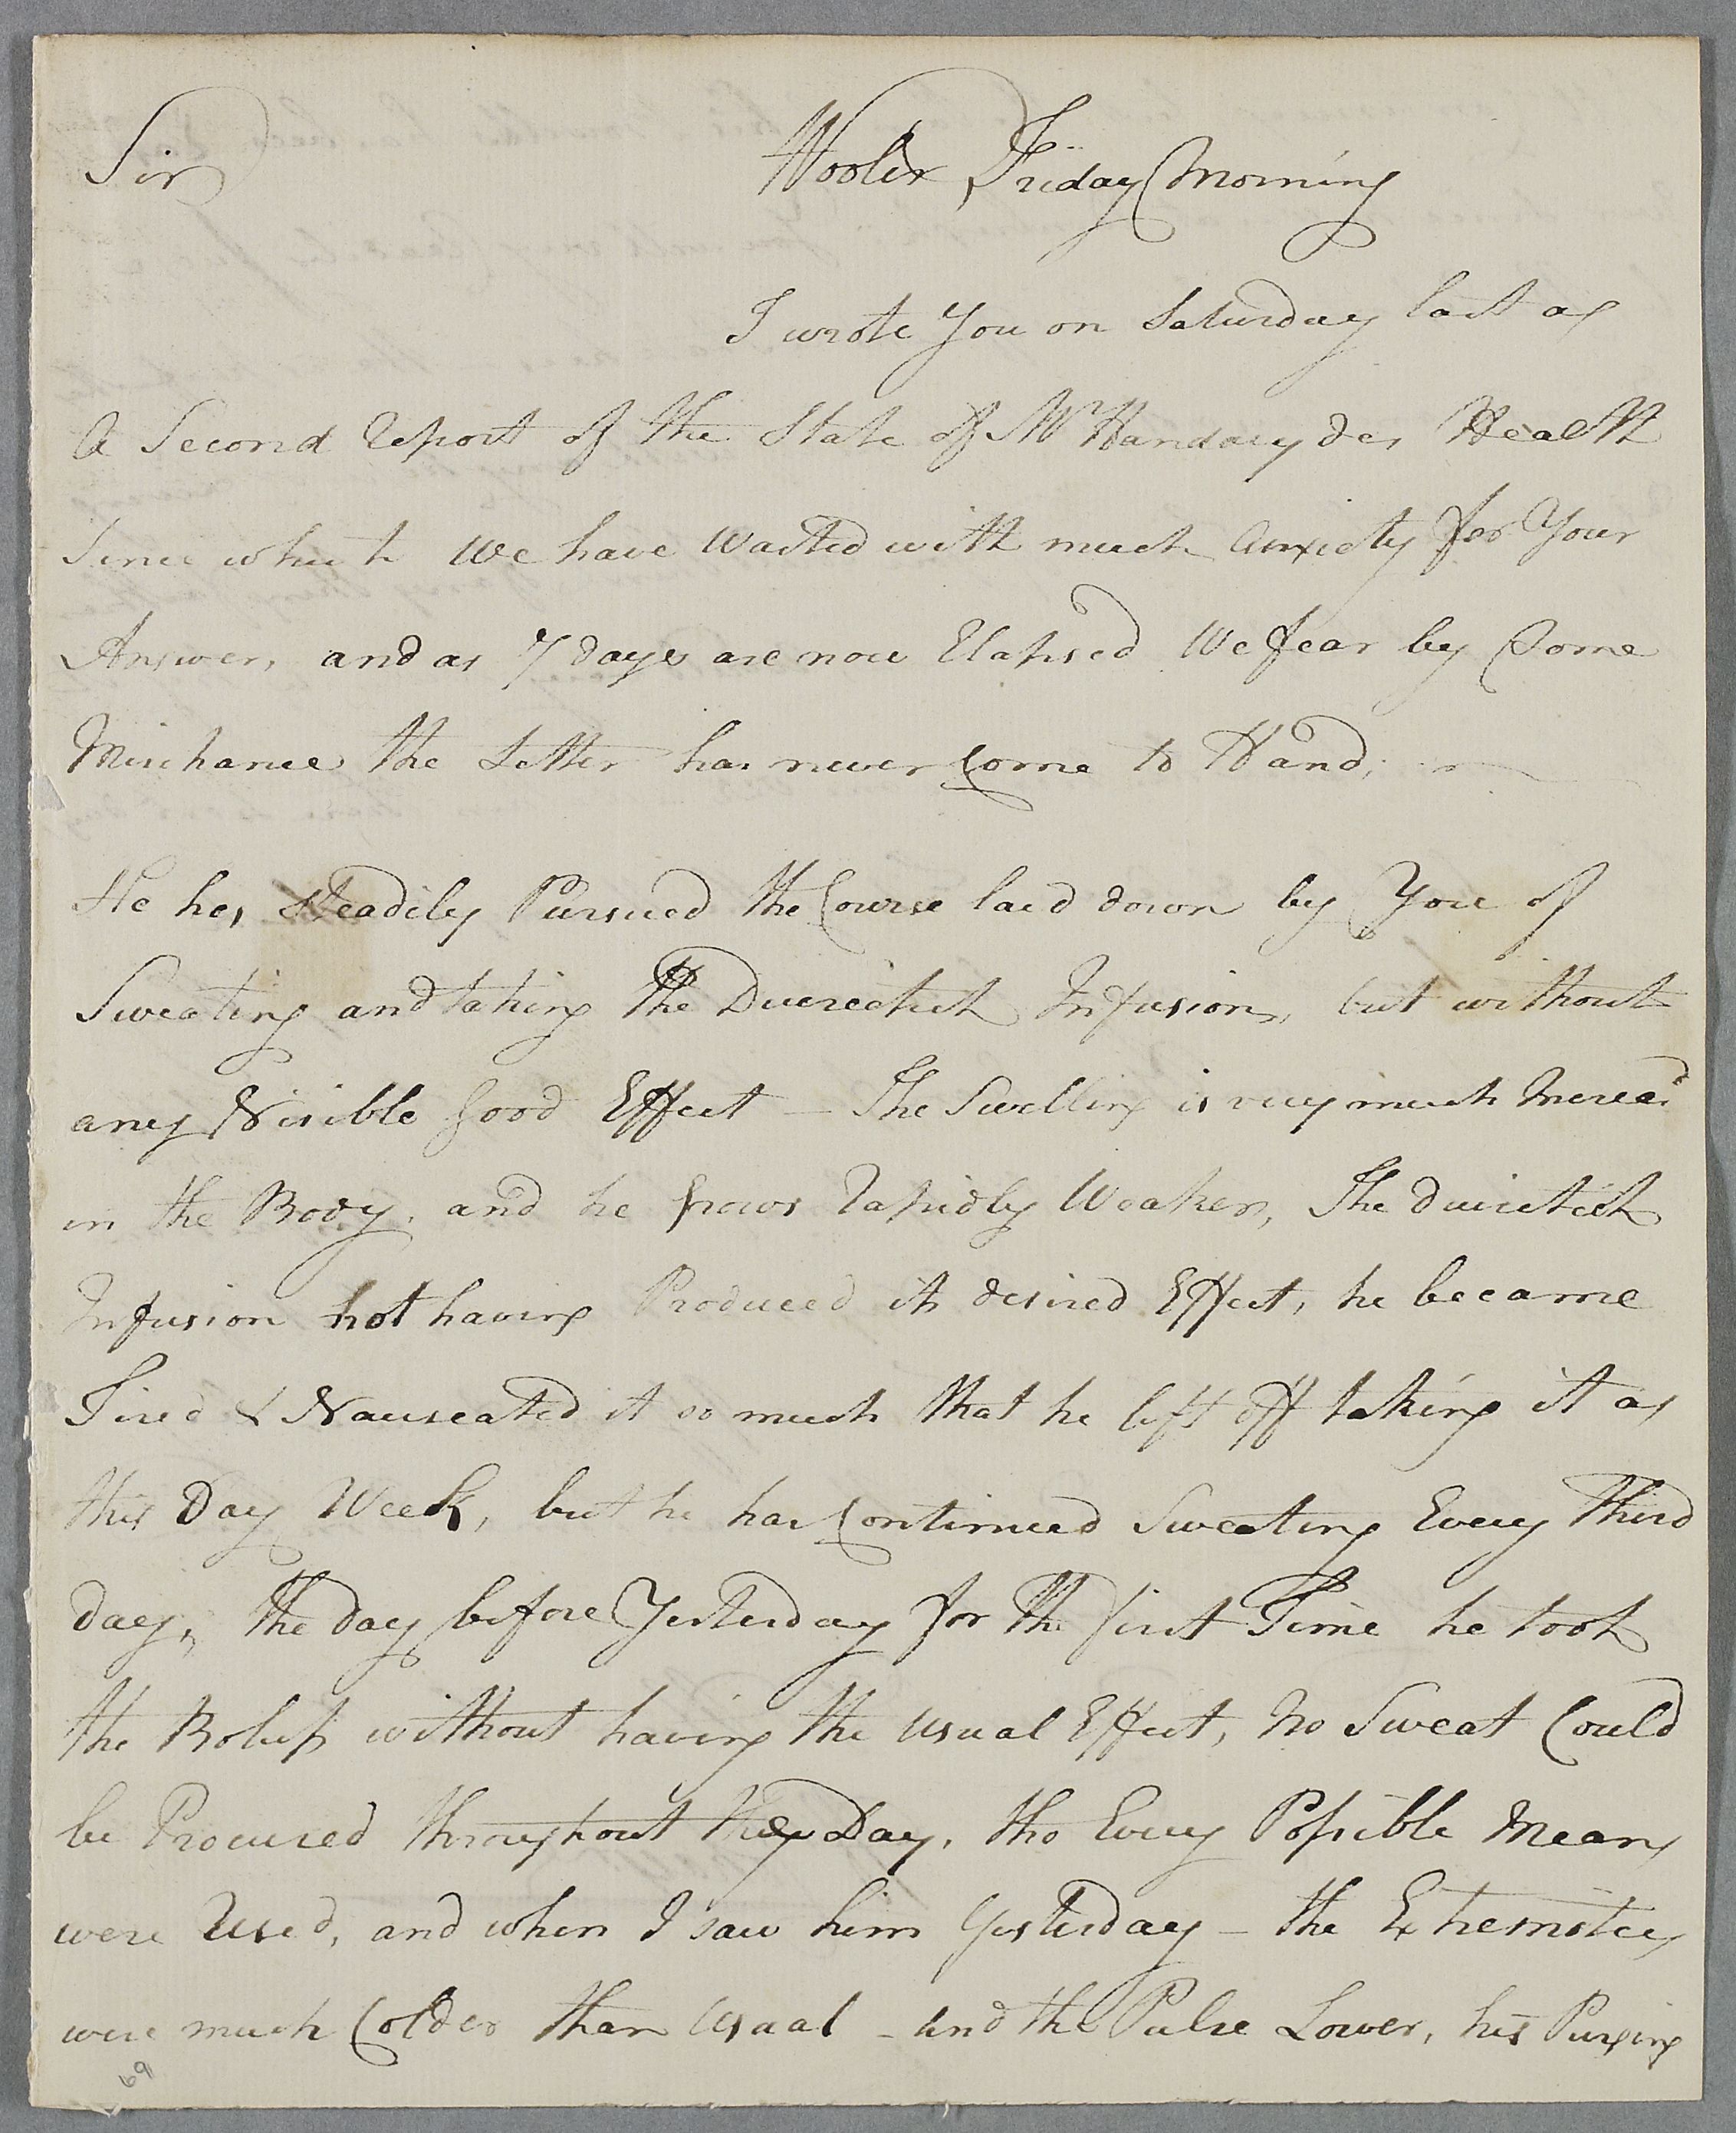 Sir
Wooler Friday Morning
I wrote You on Saturday last as
A Second Report of the State of Mr Handasydes Health
Since which We have Waited with much Anxiety for Your
Answer, and as 7 days are now Elapsed We fear by Some
Mischance the Letter has never Come to Hand,
He has steadily Pursued the Course laid down by You of
Sweating and taking the Diuretick Infusion, but without
any Visible Good Effect – The Swelling is very much Increasd
in the Body, and he grows Rapidly Weaker, The Diuretick
Infusion not having Produced its desired Effect, he became
Tired & Nauseated it so much that he left off taking it as
this Day Week, but he has Continued Sweating Every Third
day, the day before Yesterday for the first Time he took
the Boluss without having the usual Effect, No Sweat Could
be Procured throughout the Day, tho Every Possible Means
were Used, and when I saw him Yesterday – the Extremities
were much Colder than Usual – and the Pulse Lower, his Purging
69